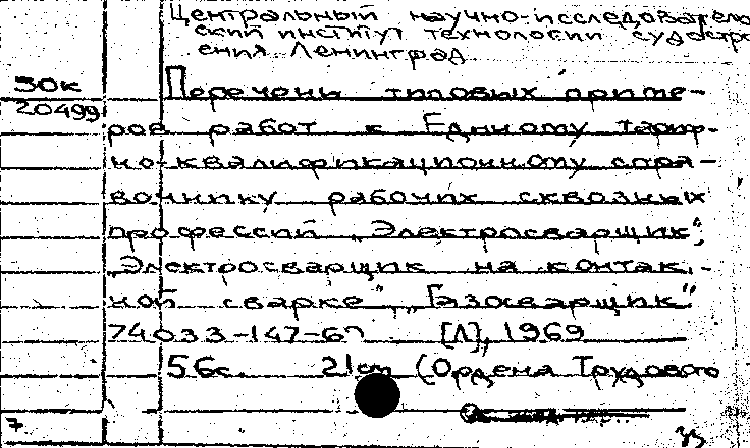 Центральный научно-исследователь
ский институт технологии судостро
ения Ленинград
30к
20499
Перечень типовых приме-
ров работ к Единому тариф-
но-квалификационному спра-
вочнику рабочих сквозных
профессий „Электросварщик",
„Электросварщик на контак-
ной сварке", „Газосварщик"
74033-147-67 [Л], 1969
56с. 21см (Ордена Трудового
7
33